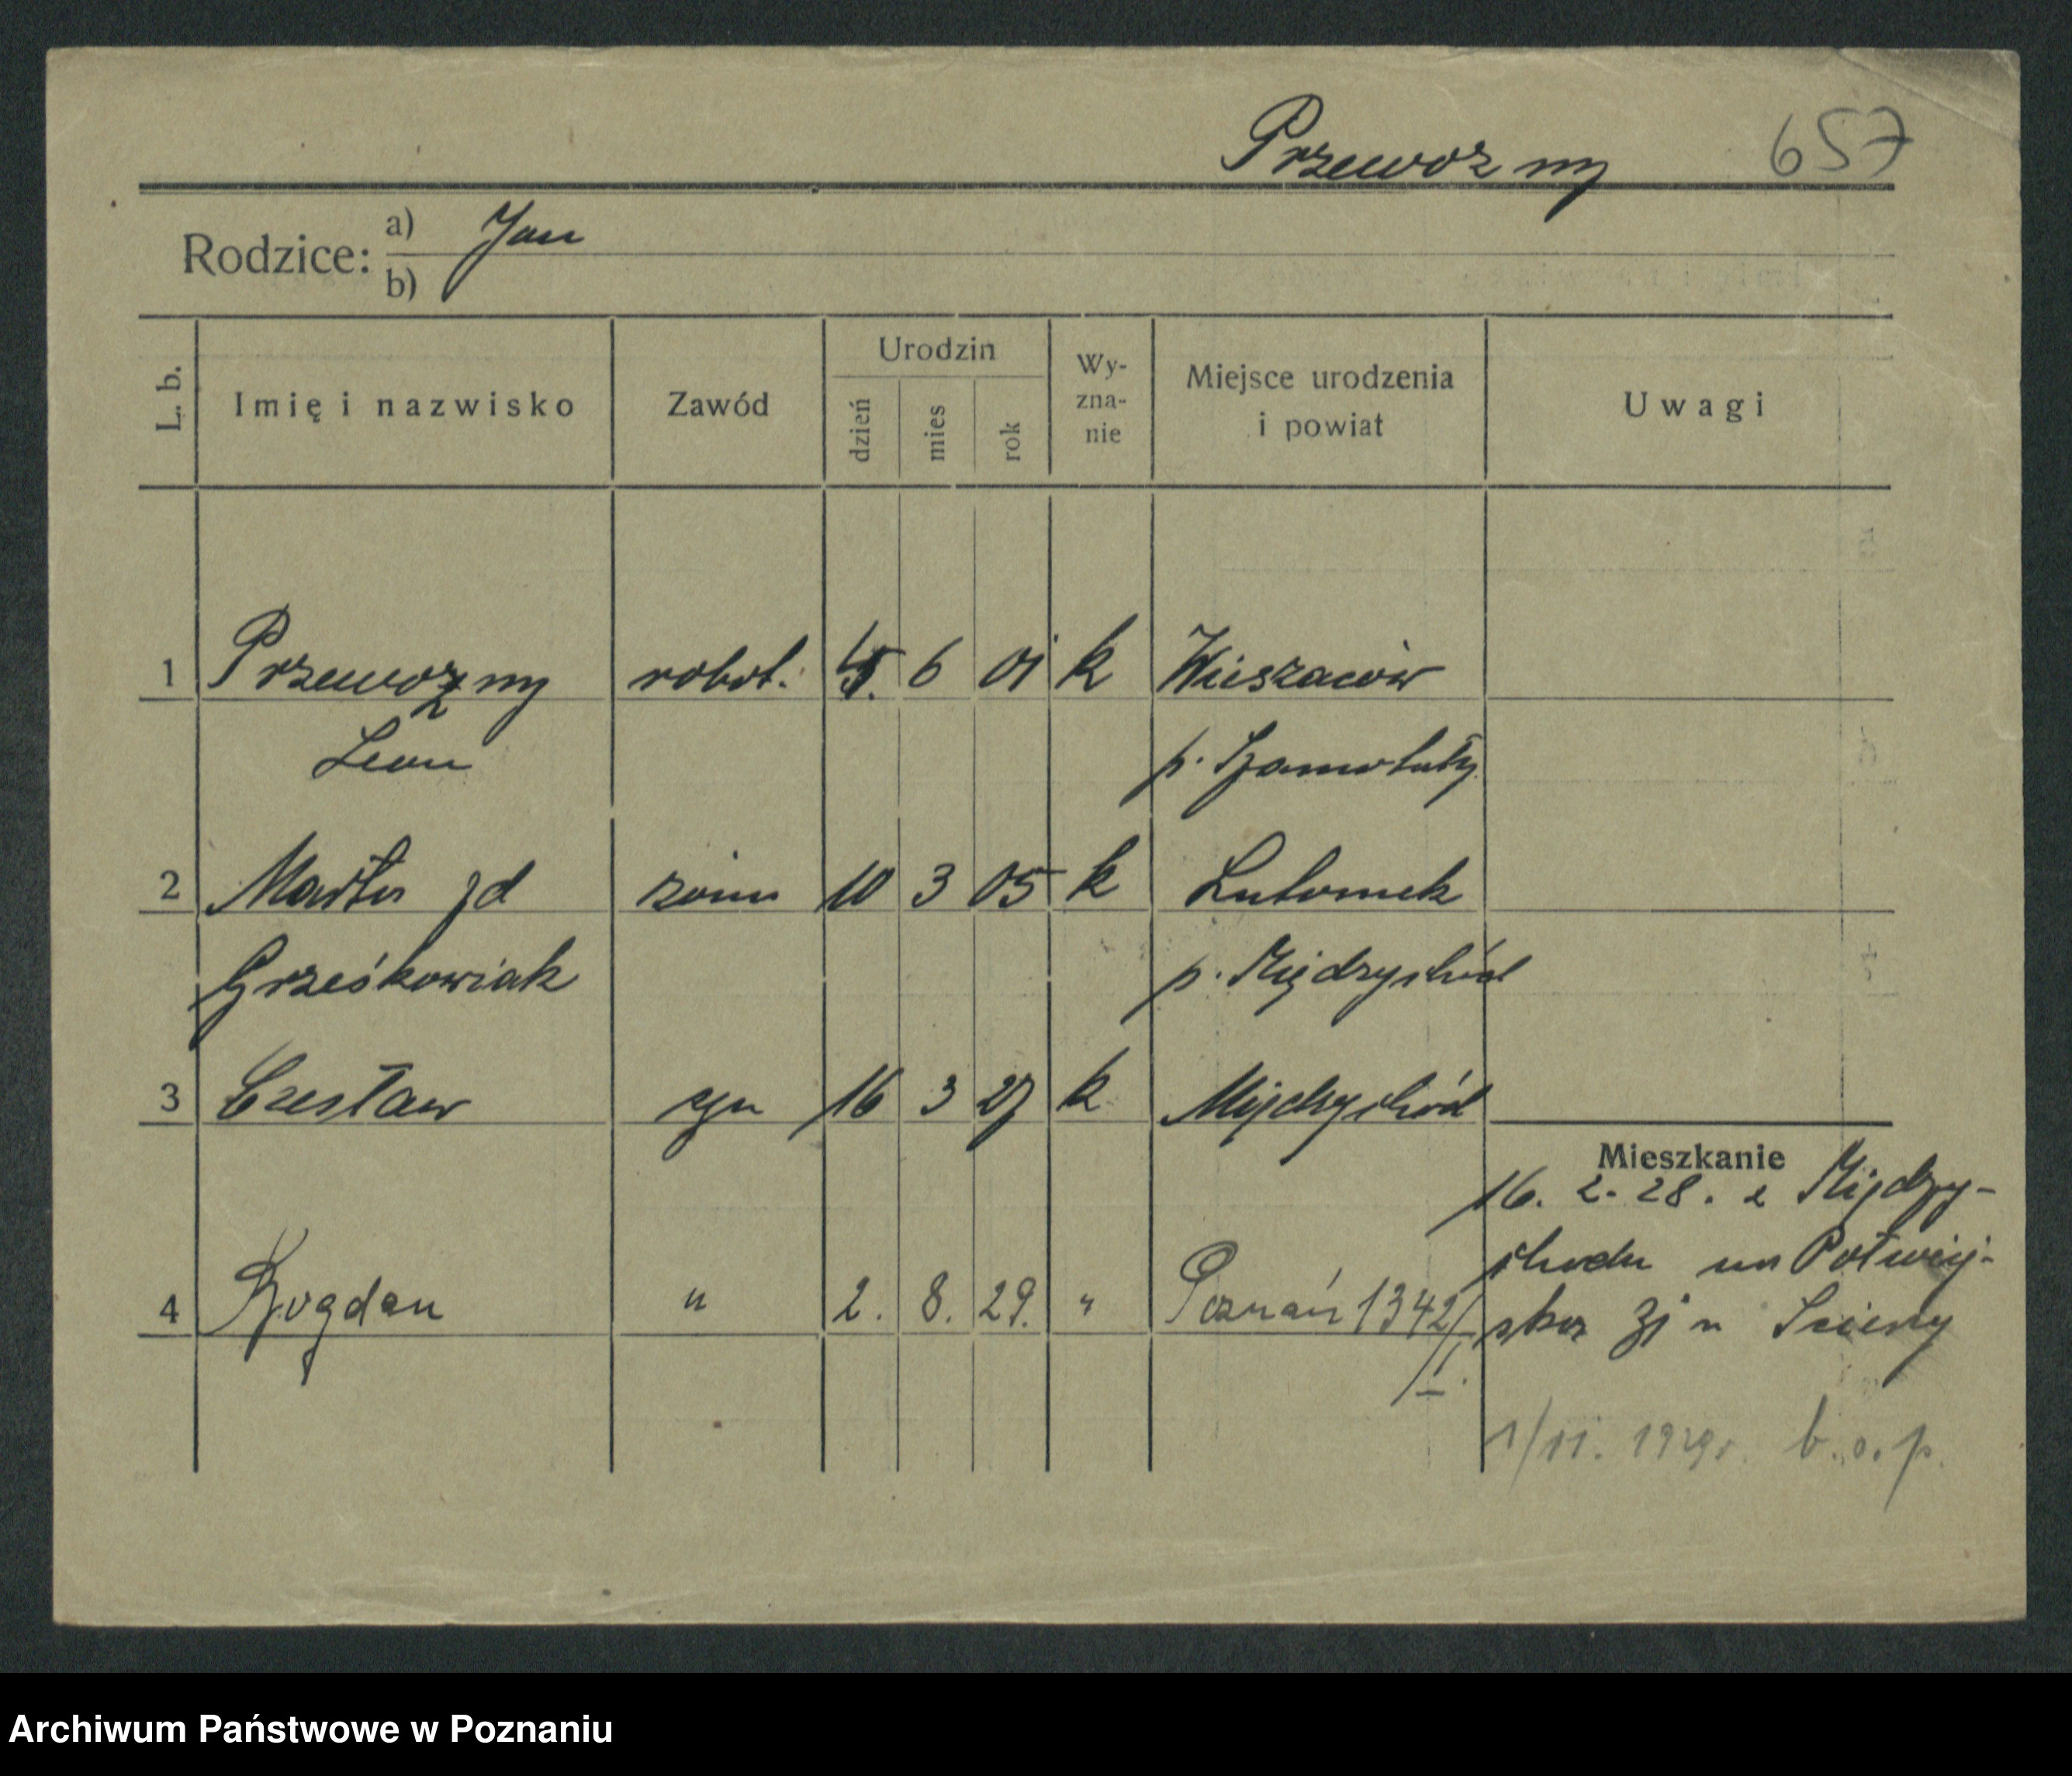 Przewozny 657
Rodzice: a) Jan
b)
L. b. Imię i nazwisko Zawód Urodzin dzień mies rok Wy-zna-nie Miejsce urodzenia i powiat Uwagi
1 Przewozny robot. 6 01 k
Leon p. Szamotuły
2 Marta zd żona 10 3 05 k Lutomek
Grześkowiak p. Międzychód
3 Czesław syn 16 3 27 k Międzychód
Mieszkanie
16. 2. 28. z Między-
chodu na Połwiej-
4 Bogdan " 2. 8. 29. " Poznań 1342/I.
ską 31 u
1/11. 1929r. b.o.p.
Archiwum Państwowe w Poznaniu